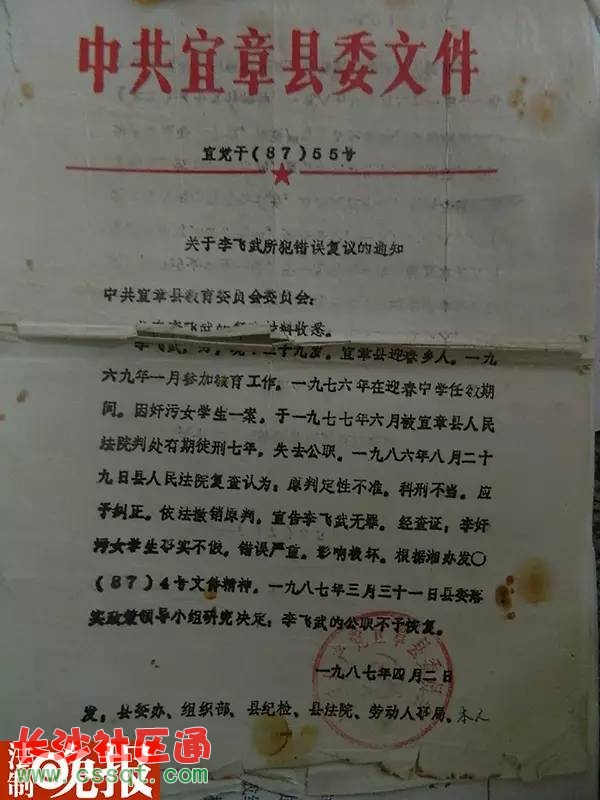 中共宜章县委文件
宜党干(87)55号
关于李飞武所犯错误复议的通知
中共宜章县教育委员会委员会：
李飞武的 材料收悉。
李飞武，男，现 三十九岁。宜章县迎春乡人。一九
六九年一月参加教育工作。一九七六年在迎春中学任教期
间。因奸污女学生一案，于一九七七年六月被宜章县人民
法院判处有期徒刑七年。失去公职。一九八六年八月二十
九日县人民法院复查认为：原判定性不准。科刑不当。应
予纠正。依法撤销原判。宣告李飞武无罪。经查证：李奸
污女学生事实不假。错误严重。影响极坏。根据湘办发〇
(87)4号文件精神。一九八七年三月三十一日县委落
实政策领导小组研究决定：李飞武的公职不予恢复。
一九八七年四月二日
发：县委办、组织部、县纪检、县法院、劳动人事局、本人
长沙社区通
www.cssqt.com
法制
晚报